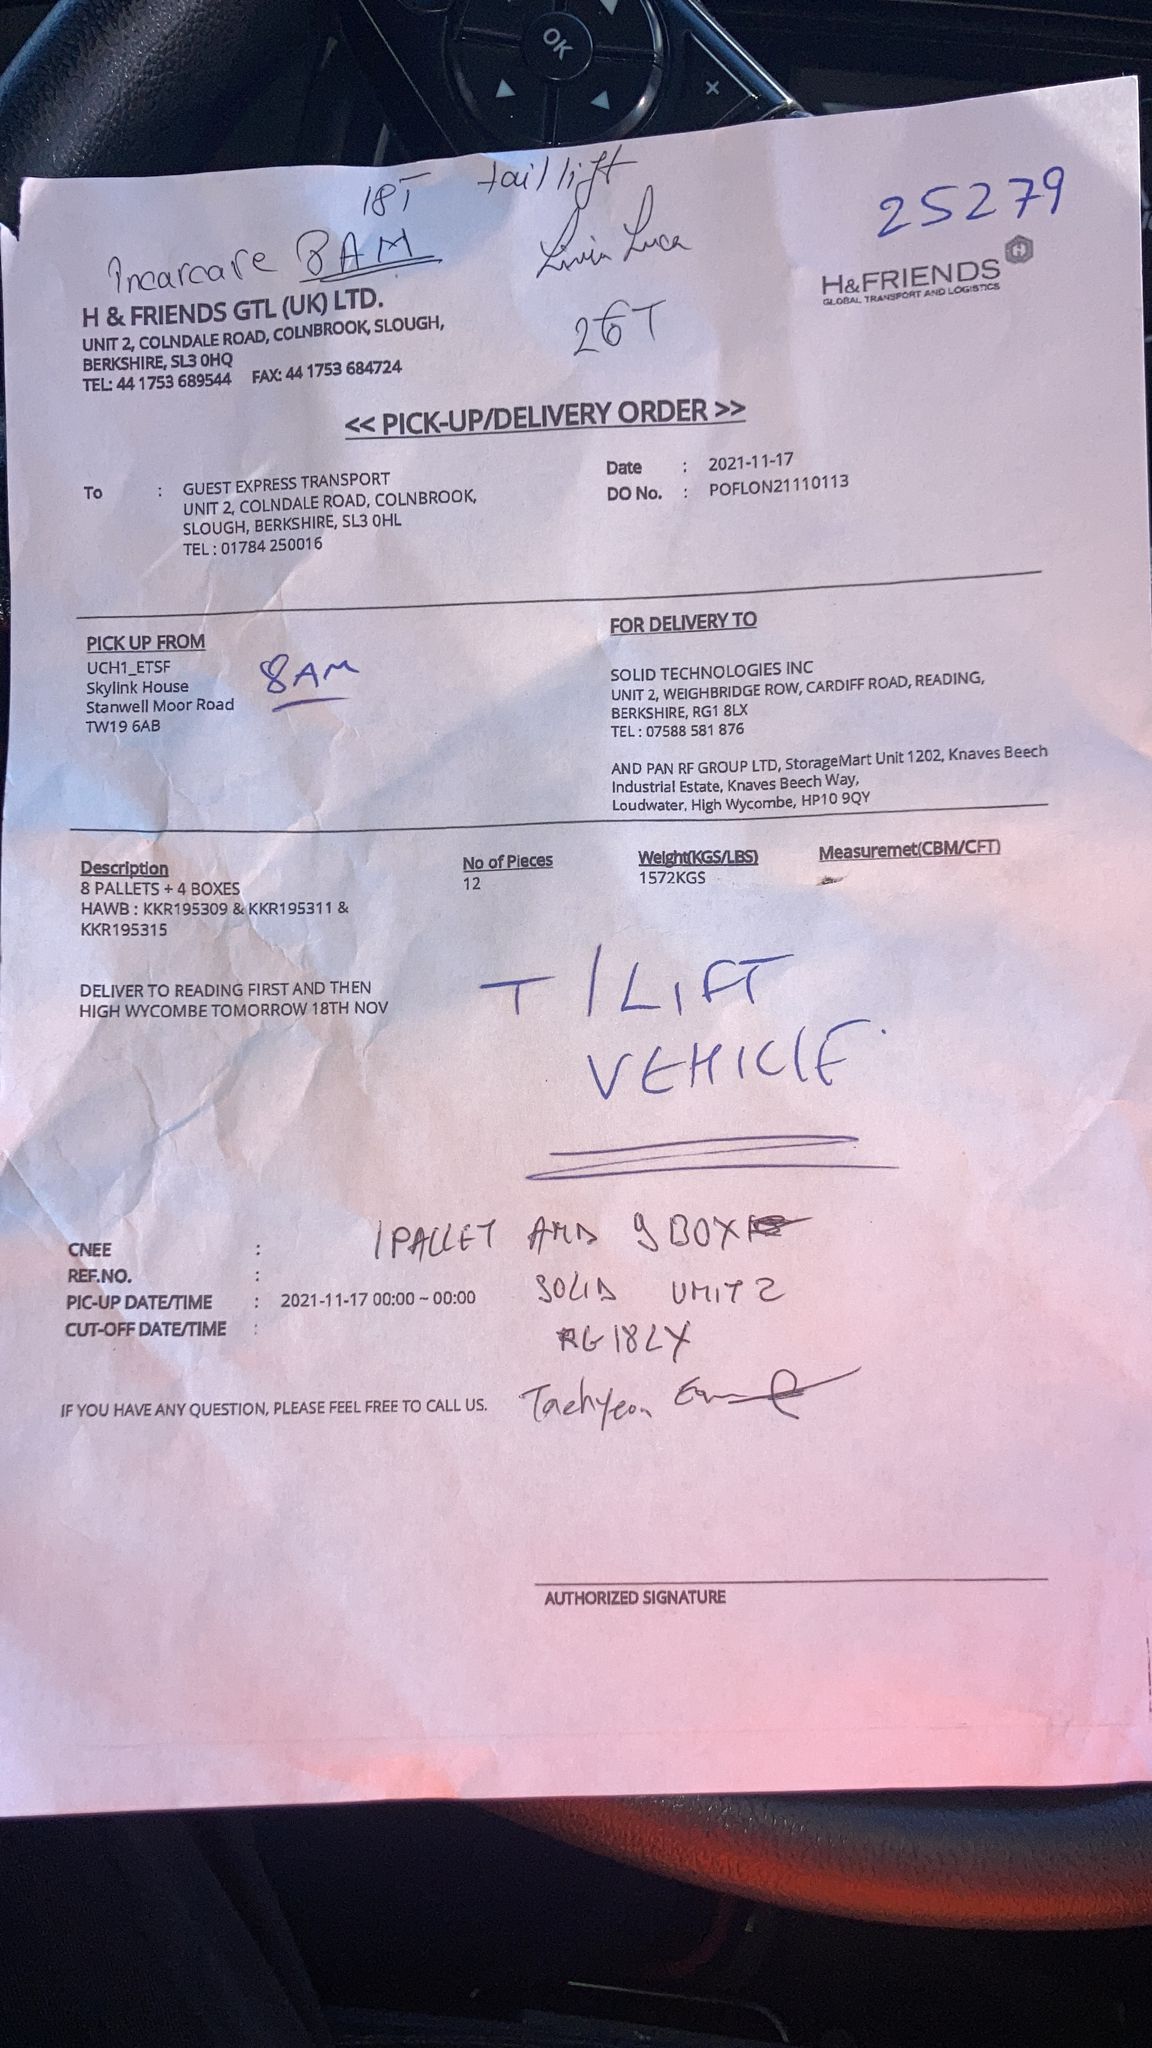 18T tail lift
25279
Incarcare 8AM
Livia Luca
H&FRIENDS
GLOBAL TRANSPORT AND LOGISTICS
H & FRIENDS GTL (UK) LTD.
UNIT 2, COLNDALE ROAD, COLNBROOK, SLOUGH,
BERKSHIRE, SL3 0HQ
TEL: 44 1753 689544 FAX: 44 1753 684724
26T
<< PICK-UP/DELIVERY ORDER >>
To : GUEST EXPRESS TRANSPORT
UNIT 2, COLNDALE ROAD, COLNBROOK,
SLOUGH, BERKSHIRE, SL3 0HL
TEL : 01784 250016
Date : 2021-11-17
DO No. : POFLON21110113
PICK UP FROM
UCH1_ETSF
Skylink House
Stanwell Moor Road
TW19 6AB
8AM
FOR DELIVERY TO
SOLID TECHNOLOGIES INC
UNIT 2, WEIGHBRIDGE ROW, CARDIFF ROAD, READING,
BERKSHIRE, RG1 8LX
TEL : 07588 581 876
AND PAN RF GROUP LTD, StorageMart Unit 1202, Knaves Beech
Industrial Estate, Knaves Beech Way,
Loudwater, High Wycombe, HP10 9QY
Description No of Pieces Weight(KGS/LBS) Measuremet(CBM/CFT)
8 PALLETS + 4 BOXES 12 1572KGS
HAWB : KKR195309 & KKR195311 &
KKR195315
DELIVER TO READING FIRST AND THEN
HIGH WYCOMBE TOMORROW 18TH NOV
T/LIFT
VEHICLE
1 PALLET AND 9 BOX
SOLID UNIT 2
RG18LX
Taehyeon
CNEE :
REF.NO. :
PIC-UP DATE/TIME : 2021-11-17 00:00 ~ 00:00
CUT-OFF DATE/TIME :
IF YOU HAVE ANY QUESTION, PLEASE FEEL FREE TO CALL US.
AUTHORIZED SIGNATURE
OK